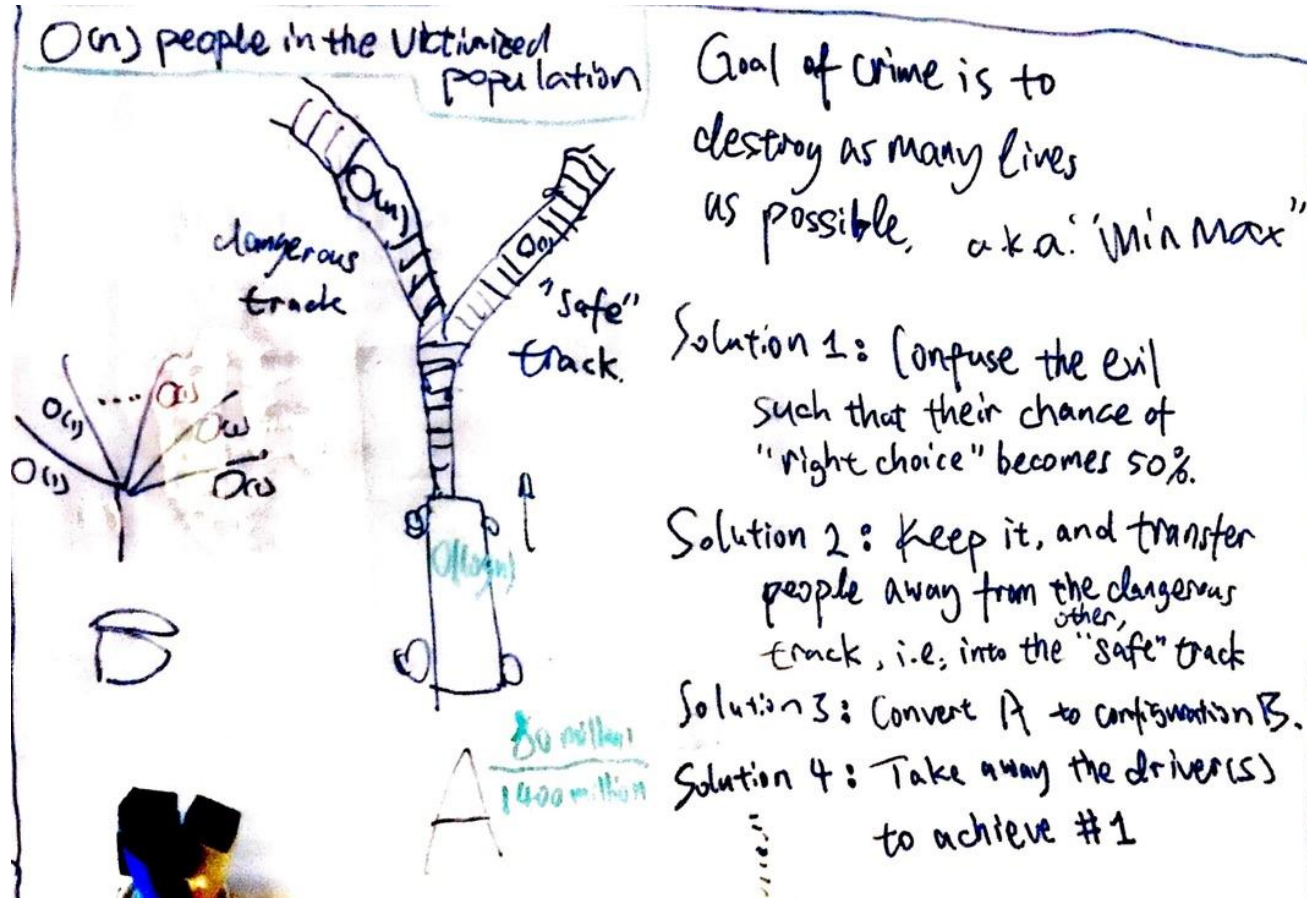 O(n) people in the Victimized
population
O(n)
O(1)
dangerous
track
"safe"
track.
O(1)
O(1)
O(1)
O(1)
O(logn)
B
A
80 million
1400 million
Goal of crime is to
destroy as many lives
as possible, a.k.a: "Min Max"
Solution 1: Confuse the evil
such that their chance of
"right choice" becomes 50%.
Solution 2: Keep it, and transfer
people away from the dangerous
other,
track, i.e. into the "safe" track
Solution 3: Convert A to configuration B.
Solution 4: Take away the driver(s)
to achieve #1